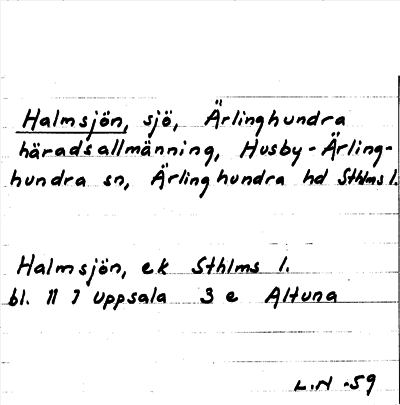 Halmsjön, sjö, Ärlinghundra
häradsallmänning, Husby-Ärling-
hundra sn, Ärlinghundra hd Sthlms l.
Halmsjön, ek Sthlms l.
bl. 11 I Uppsala 3 e Altuna
L.N -59